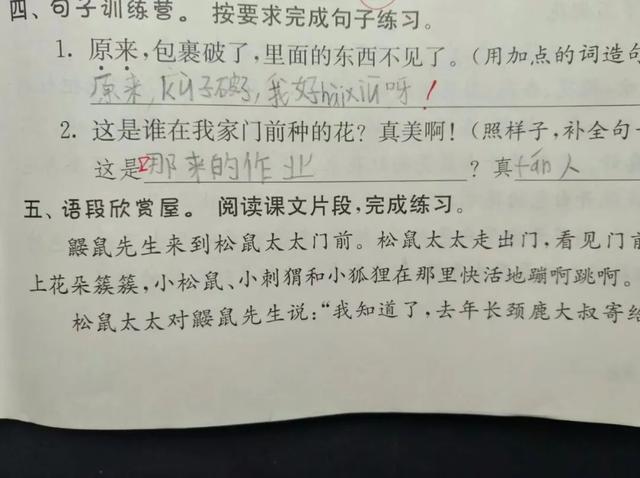 四、句子训练营。 按要求完成句子练习。
1. 原来,包裹破了,里面的东西不见了。(用加点的词造句
原来,kù子破了,我好hàixiū呀!
2. 这是谁在我家门前种的花?真美啊!(照样子,补全句子
这是那来的作业?真fán人
五、语段欣赏屋。 阅读课文片段,完成练习。
鼹鼠先生来到松鼠太太门前。松鼠太太走出门,看见门前
上花朵簇簇,小松鼠、小刺猬和小狐狸在那里快活地蹦啊跳啊。
松鼠太太对鼹鼠先生说:“我知道了,去年长颈鹿大叔寄给